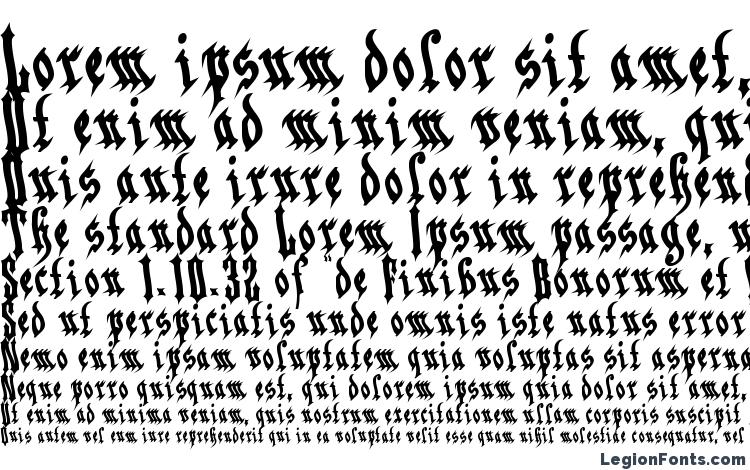 Lorem ipsum dolor sit amet,
Ut enim ad minim veniam, qui
Duis aute irure dolor in reprehend
The standard Lorem Ipsum passage,
Section 1.10.32 of "de Finibus Bonorum et
Sed ut perspiciatis unde omnis iste natus error
Nemo enim ipsam voluptatem quia voluptas sit asperna
Neque porro quisquam est, qui dolorem ipsum quia dolor sit amet,
Ut enim ad minima veniam, quis nostrum exercitationem ullam corporis suscipit
Quis autem vel eum iure reprehenderit qui in ea voluptate velit esse quam nihil molestiae consequatur, vel
LegionFonts.com